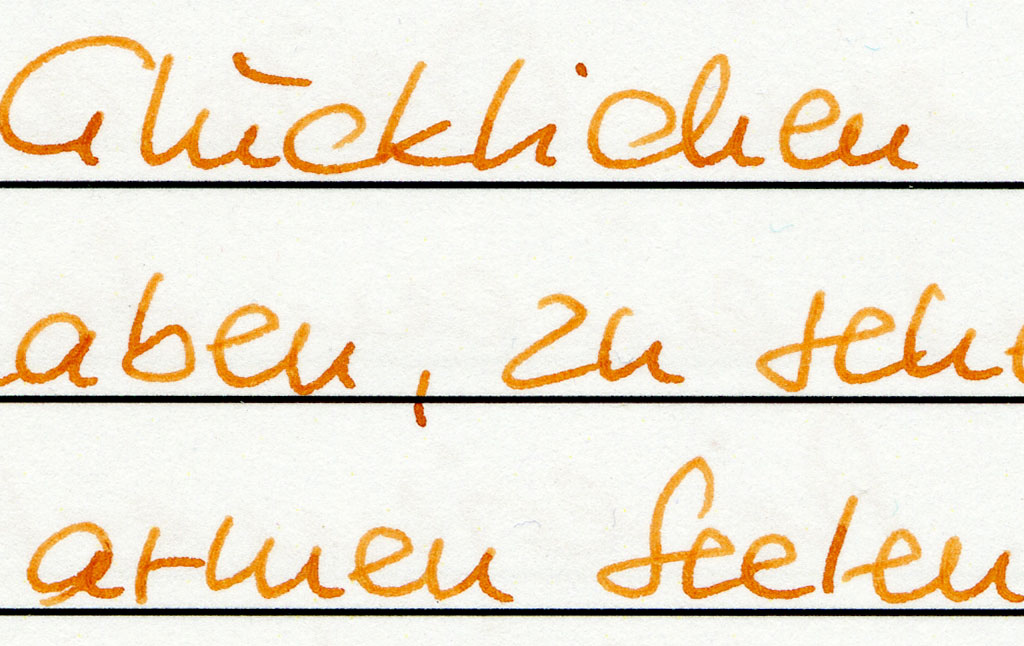 Glücklichen
aben, zu sehe
armen Seelen